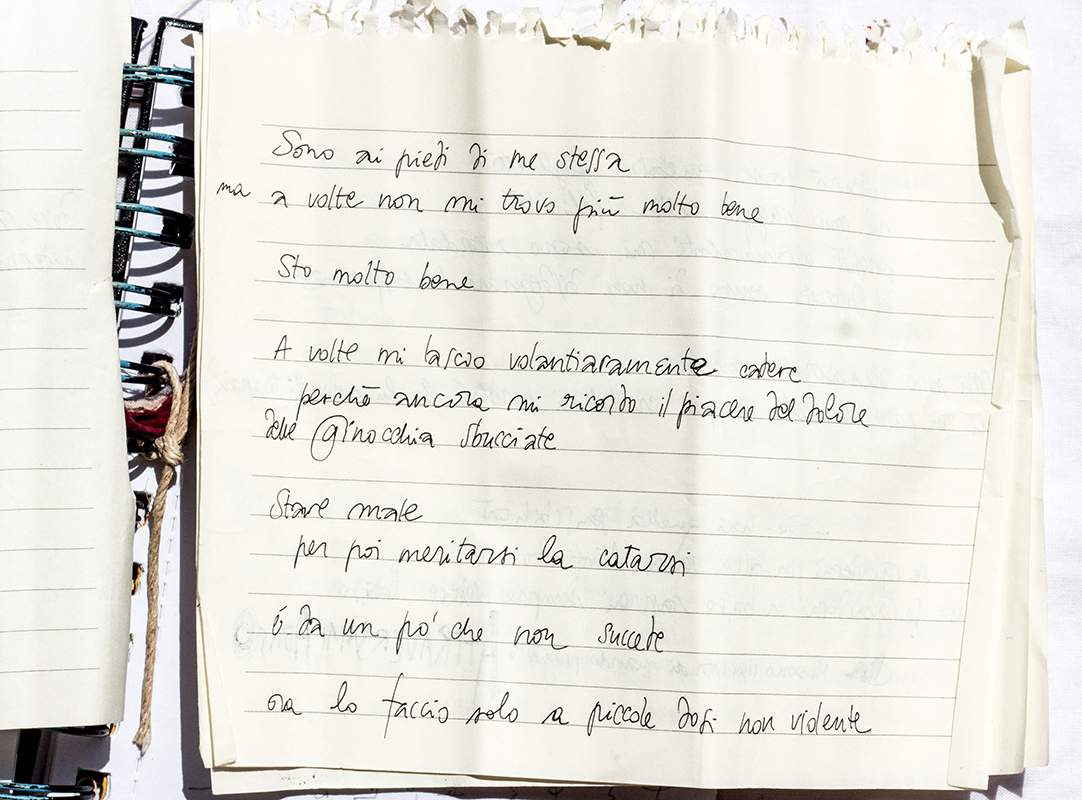 Sono ai piedi di me stessa
ma a volte non mi trovo più molto bene
Sto molto bene
A volte mi lascio volantiaramente cadere
perchè ancora mi ricordo il piacere del dolore
delle ginocchia sbucciate
Stare male
per poi meritarsi la catarsi
é da un po' che non succede
ora lo faccio solo a piccole dosi non violente